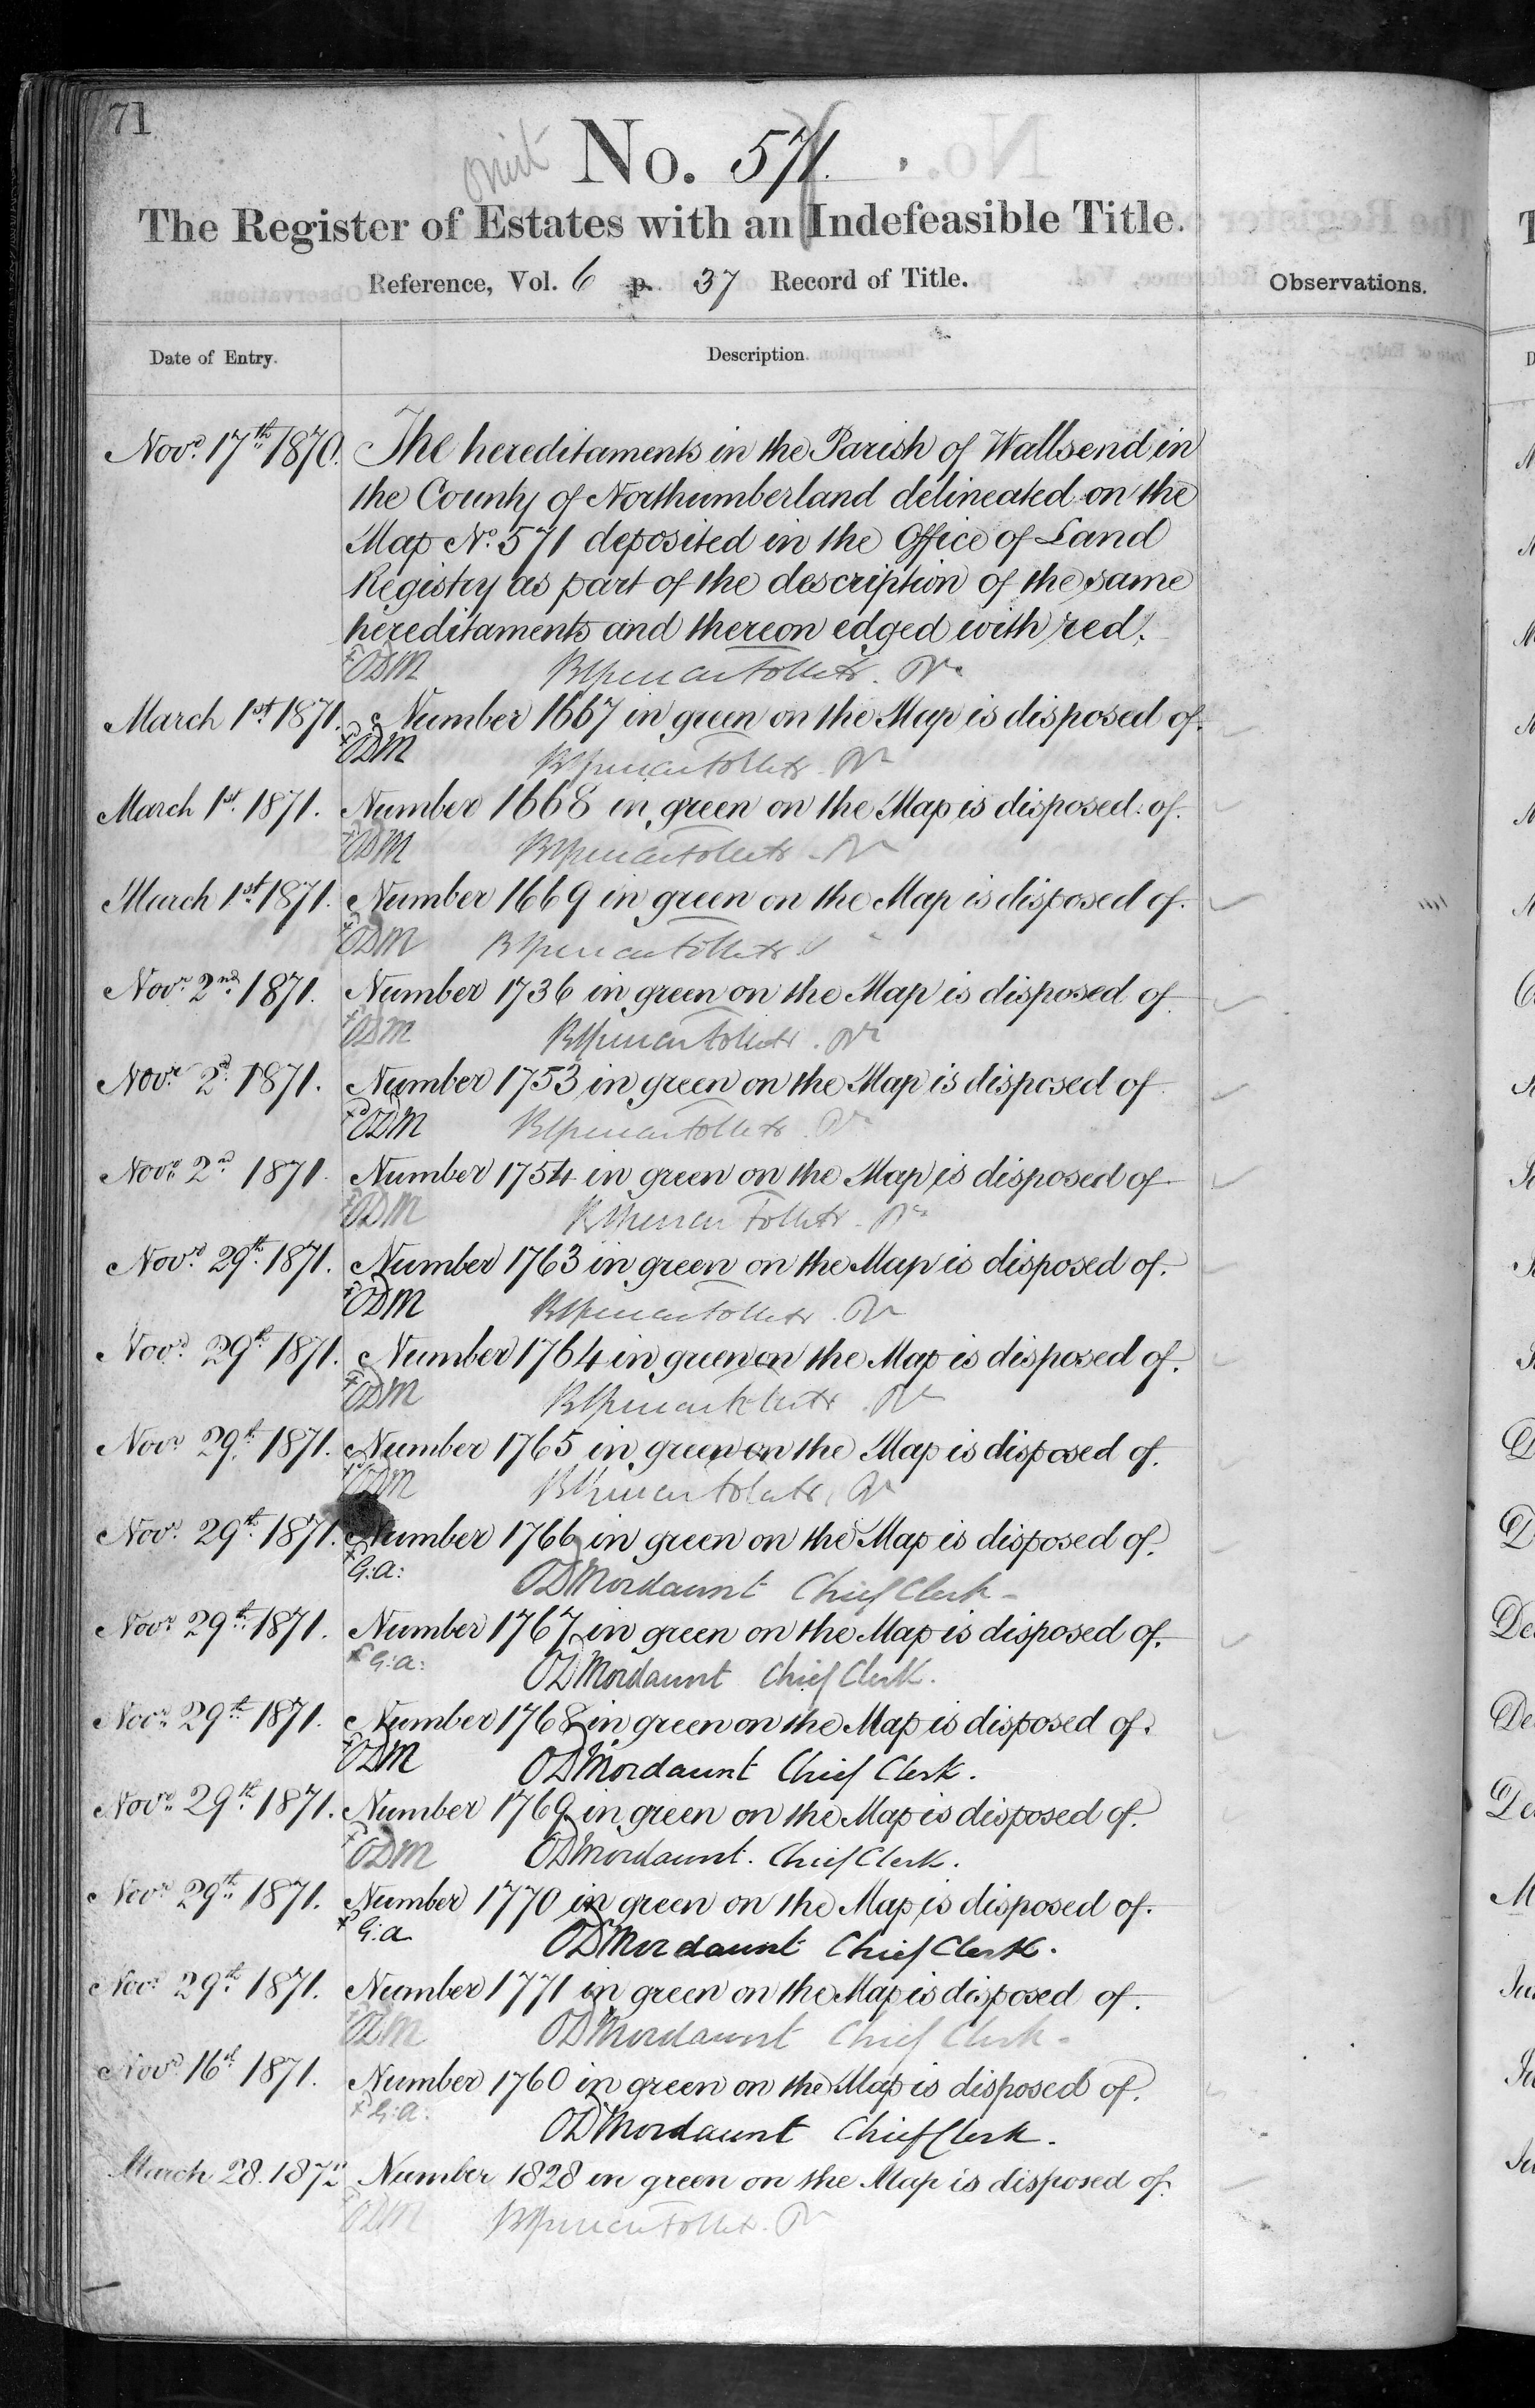 71
omit
No. 571.
The Register of Estates with an Indefeasible Title.
Reference, Vol. 6 p. 37 Record of Title.
Observations.
Date of Entry.
Description.
Novr. 17th 1870. The hereditaments in the Parish of Wallsend in
the County of Northumberland delineated on the
Map No. 571 deposited in the Office of Land
Registry as part of the description of the same
hereditaments and thereon edged with red.
ODM
March 1st 1871. Number 1667 in green on the Map is disposed of.
ODM
March 1st. 1871. Number 1668 in green on the Map is disposed of.
ODM
March 1st 1871. Number 1669 in green on the Map is disposed of.
ODM
Novr. 2nd 1871. Number 1736 in green on the Map is disposed of
ODM
Novr. 2d. 1871. Number 1753 in green on the Map is disposed of
ODM
Novr. 2d 1871. Number 1754 in green on the Map is disposed of
ODM
Novr. 29th. 1871. Number 1763 in green on the Map is disposed of.
ODM
Novr. 29th 1871. Number 1764 in green on the Map is disposed of.
ODM
Novr 29th. 1871. Number 1765 in green on the Map is disposed of.
ODM
Novr. 29th. 1871. Number 1766 in green on the Map is disposed of.
G.A: ODMordaunt Chief Clerk
Novr 29th 1871. Number 1767 in green on the Map is disposed of.
G.A: ODMordaunt Chief Clerk.
Novr. 29th 1871. Number 1768 in green on the Map is disposed of.
ODM ODMordaunt Chief Clerk.
Novr. 29th 1871. Number 1769 in green on the Map is disposed of.
ODM ODMordaunt. Chief Clerk.
Novr 29th 1871. Number 1770 in green on the Map is disposed of.
G.a ODMordaunt Chief Clerk.
Novr 29th 1871. Number 1771 in green on the Map is disposed of.
ODM ODMordaunt Chief Clerk
Novr 16th 1871. Number 1760 in green on the Map is disposed of.
G.a: ODMordaunt Chief Clerk.
March 28. 1872 Number 1828 in green on the Map is disposed of.
ODM